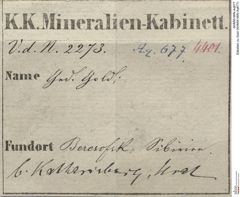 K.K. Mineralien-Kabinett.
V. d. N. 2273. Az. 677 1401.
Name Ged. Gold.
Fundort Beresofsk. Sibirien.
b. Katharinburg, Ural